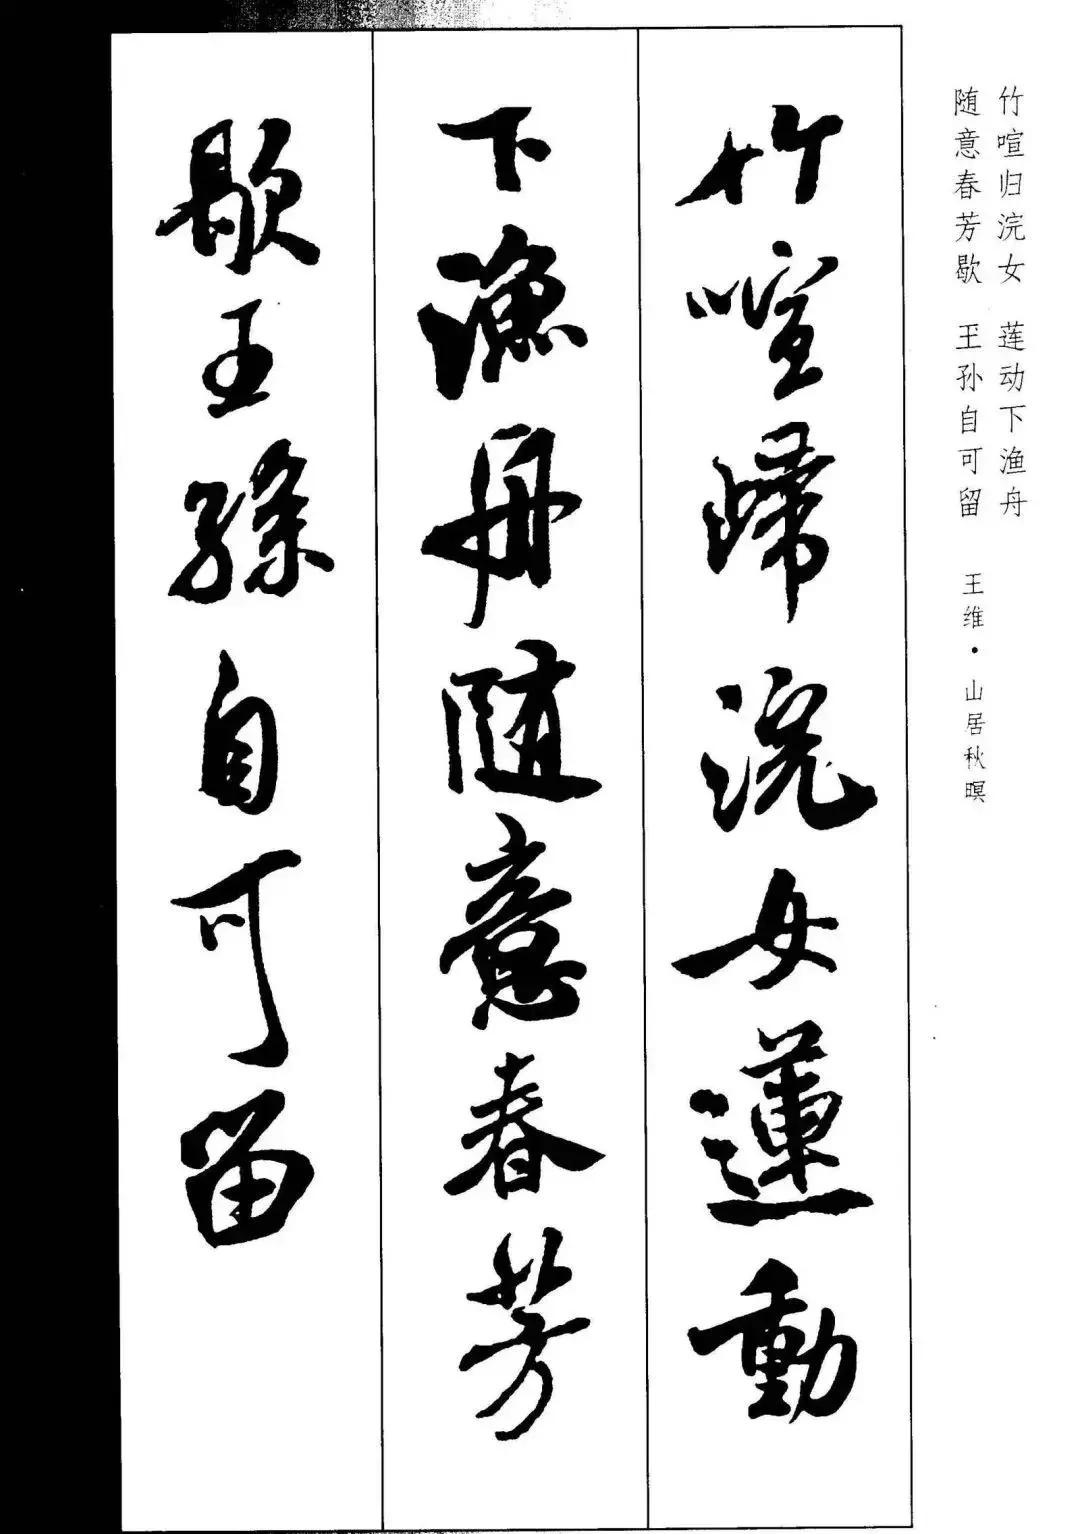 竹喧归浣女 莲动下渔舟
随意春芳歇 王孙自可留 王维·山居秋暝
竹喧歸浣女蓮動
下漁舟随意春芳
歇王孫自可留